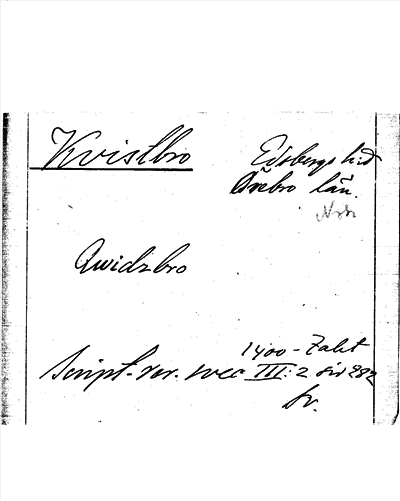 Kvistbro
Edsbergs hd
Örebro län.
Qwidzbro
1400-talet
Script. rer. svec III:2 sid 282